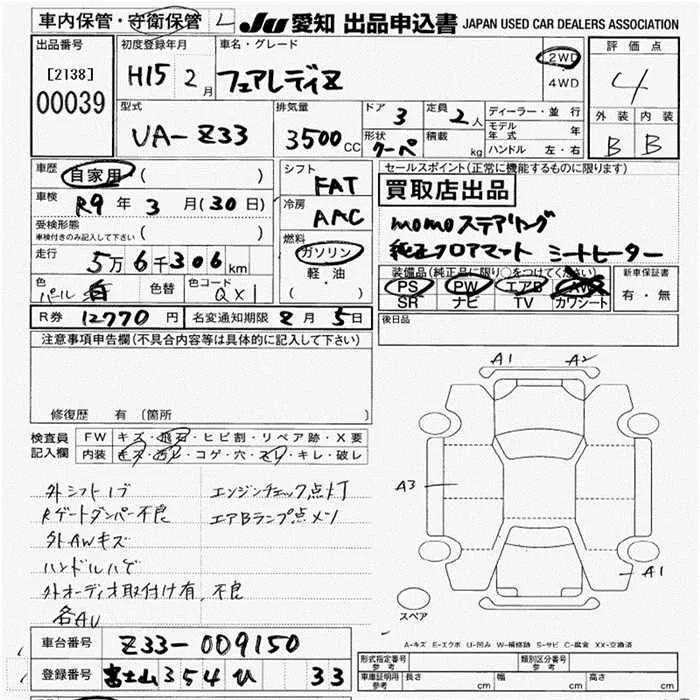 車内保管・守衛保管 L JU 愛知 出品申込書 JAPAN USED CAR DEALERS ASSOCIATION
出品番号 初度登録年月 車名・グレード 評価点
[2138] H15 2月 フェアレディZ 2WD 4
00039 4WD
型式 排気量 ドア 3 定員 2人 ディーラー・並行 外装 内装
UA-Z33 3500CC 形状 クーペ 積載 kg モデル年式 年 B B
ハンドル 左・右
車歴 自家用 ( ) シフト セールスポイント(正常に機能するものに限ります)
FAT 買取店出品
車検 R9年3月(30日) 冷房 momoステアリング
受検形態 ( ) AAC 純正フロアマット シートヒーター
車検付きのみ記入して下さい
走行 5万6千306km 燃料 ガソリン 装備品(純正品に限り○をつけてください) 新車保証書
軽・油 PS PW エアB AW 有・無
色 パール白 色替 色コード QX1 ( ・ ) SR ナビ TV カワシート
R券 12770円 名変通知期限 2月5日 後日品
注意事項申告欄(不具合内容等は具体的に記入して下さい)
修復歴 有 (箇所 )
検査員記入欄 FW キズ・飛石・ヒビ割・リペア跡・X要
内装 キズ・汚レ・コゲ・穴・スレ・キレ・破レ
A1 A2
外シフトノブ エンジンチェック点灯
Rゲートダンパー不良 エアBランプ点メツ
外AWキズ
ハンドルハゲ
外オーディオ取付け有、不良
各AU
A3
A1
スペア
A-キズ E-エクボ U-凹み W-補修跡 S-サビ C-腐食 XX-交換済
車台番号 Z33-009150
登録番号 富士山 354 ひ 33
形式指定番号 参考 類別区分番号 参考
車庫証明用 参考 長さ cm 幅 cm 高さ cm